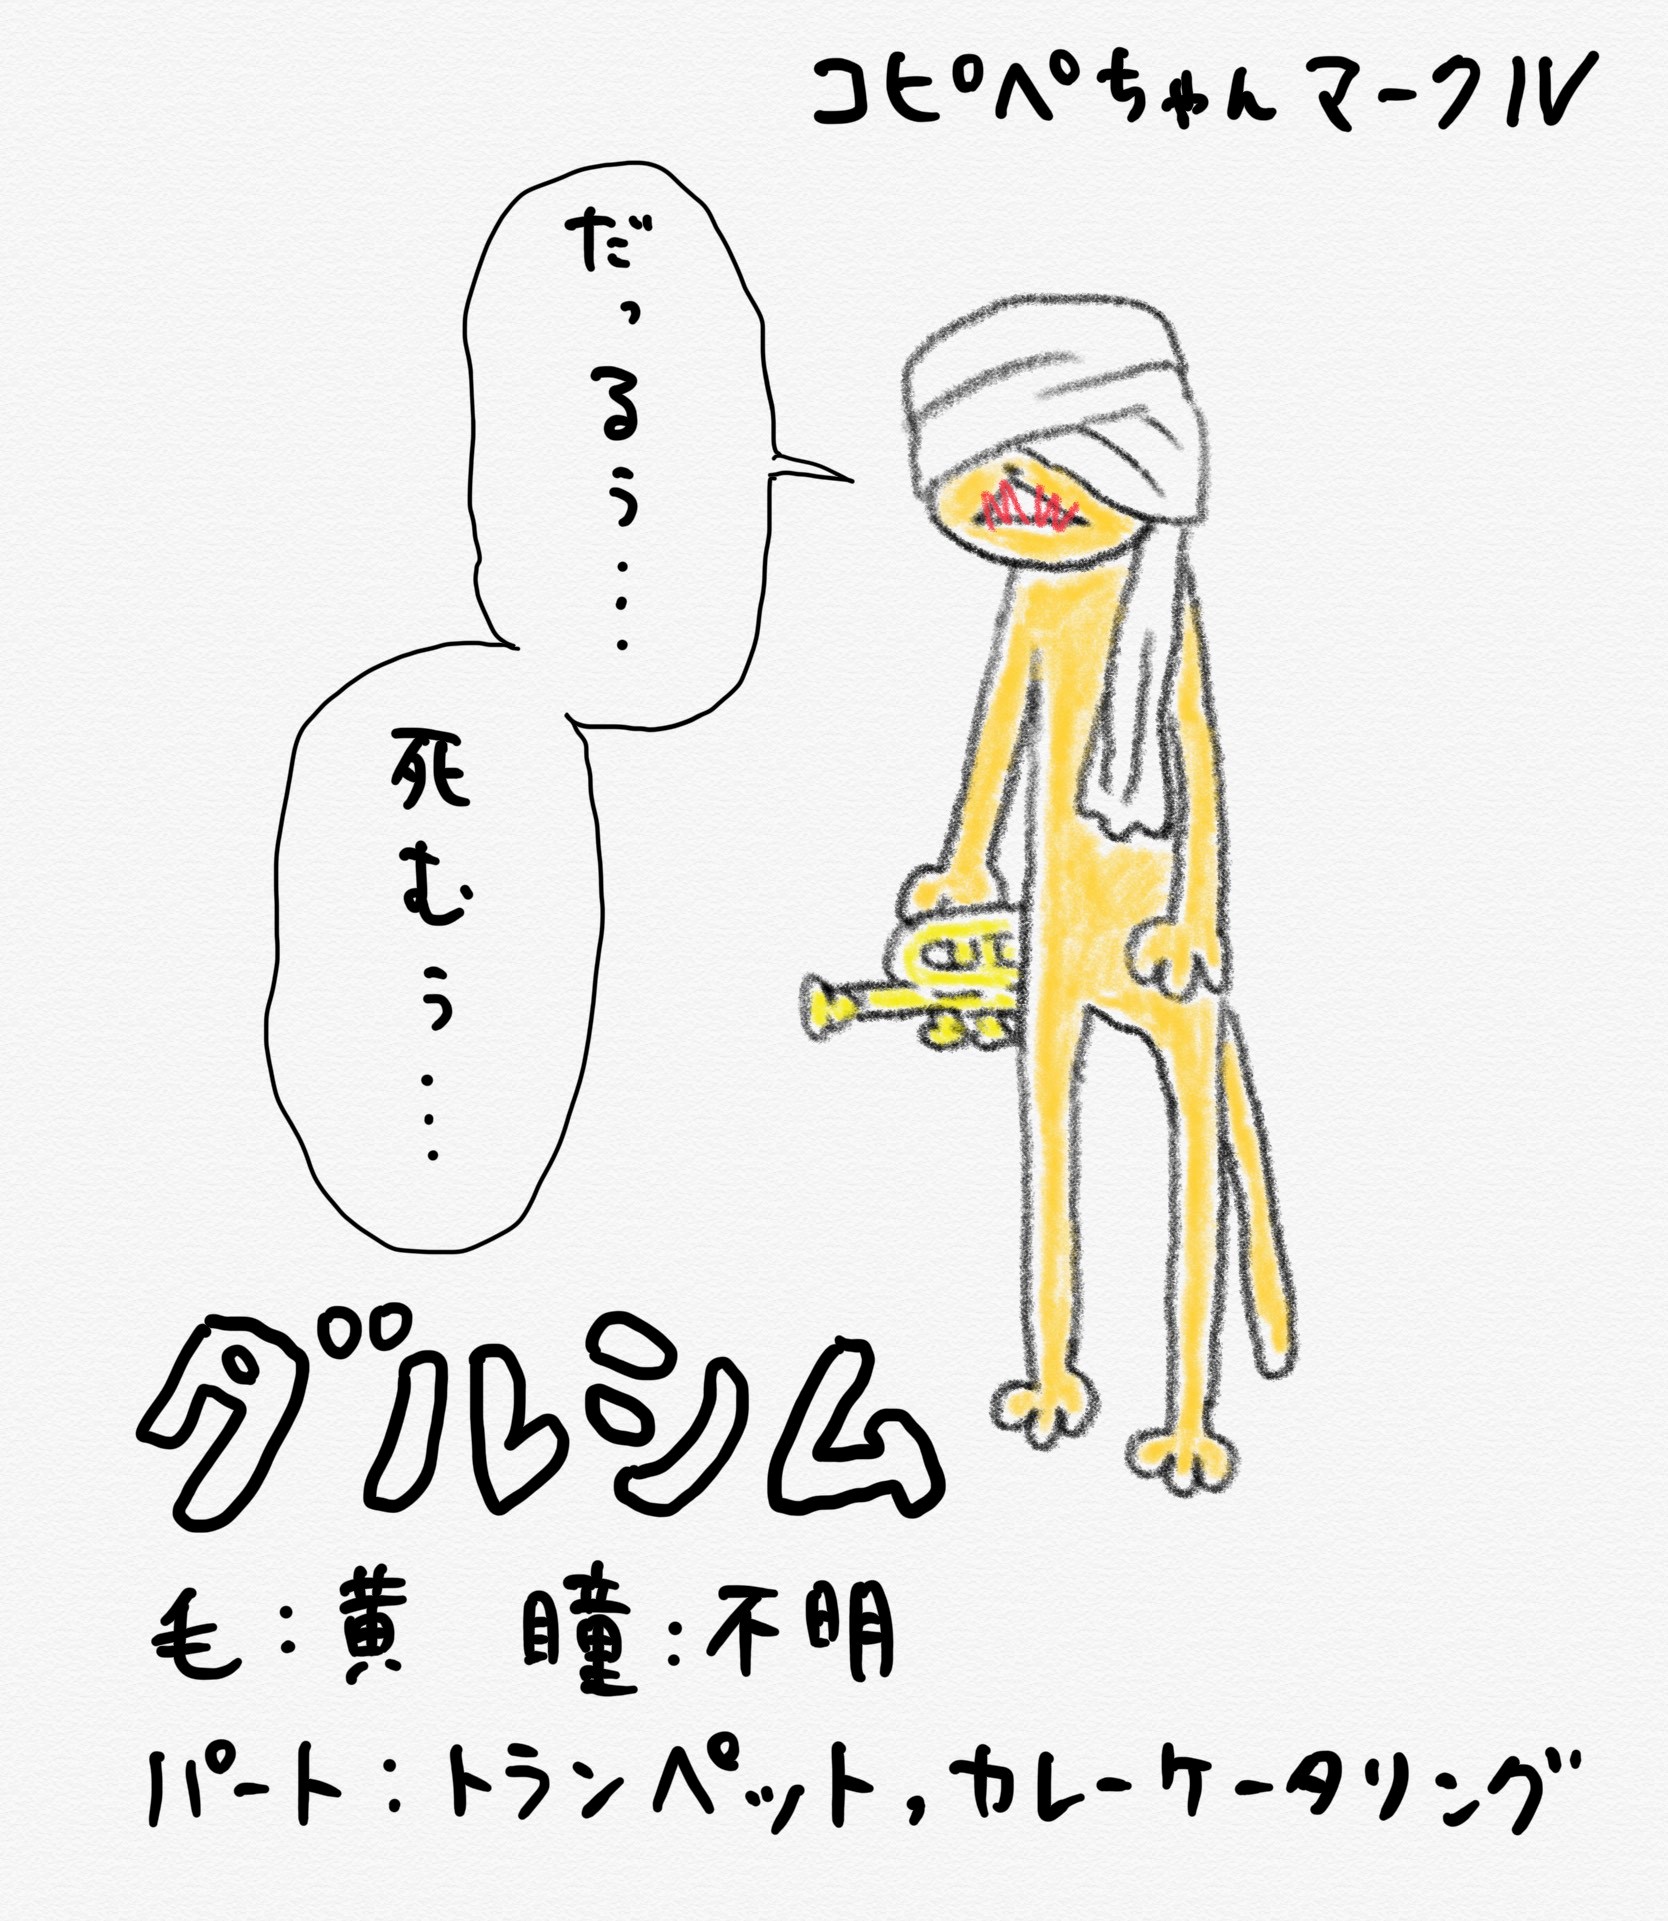 コピペちゃんマークIV
だっるぅ…
死むぅ…
ダルシム
毛：黄　瞳：不明
パート：トランペット，カレーケータリング